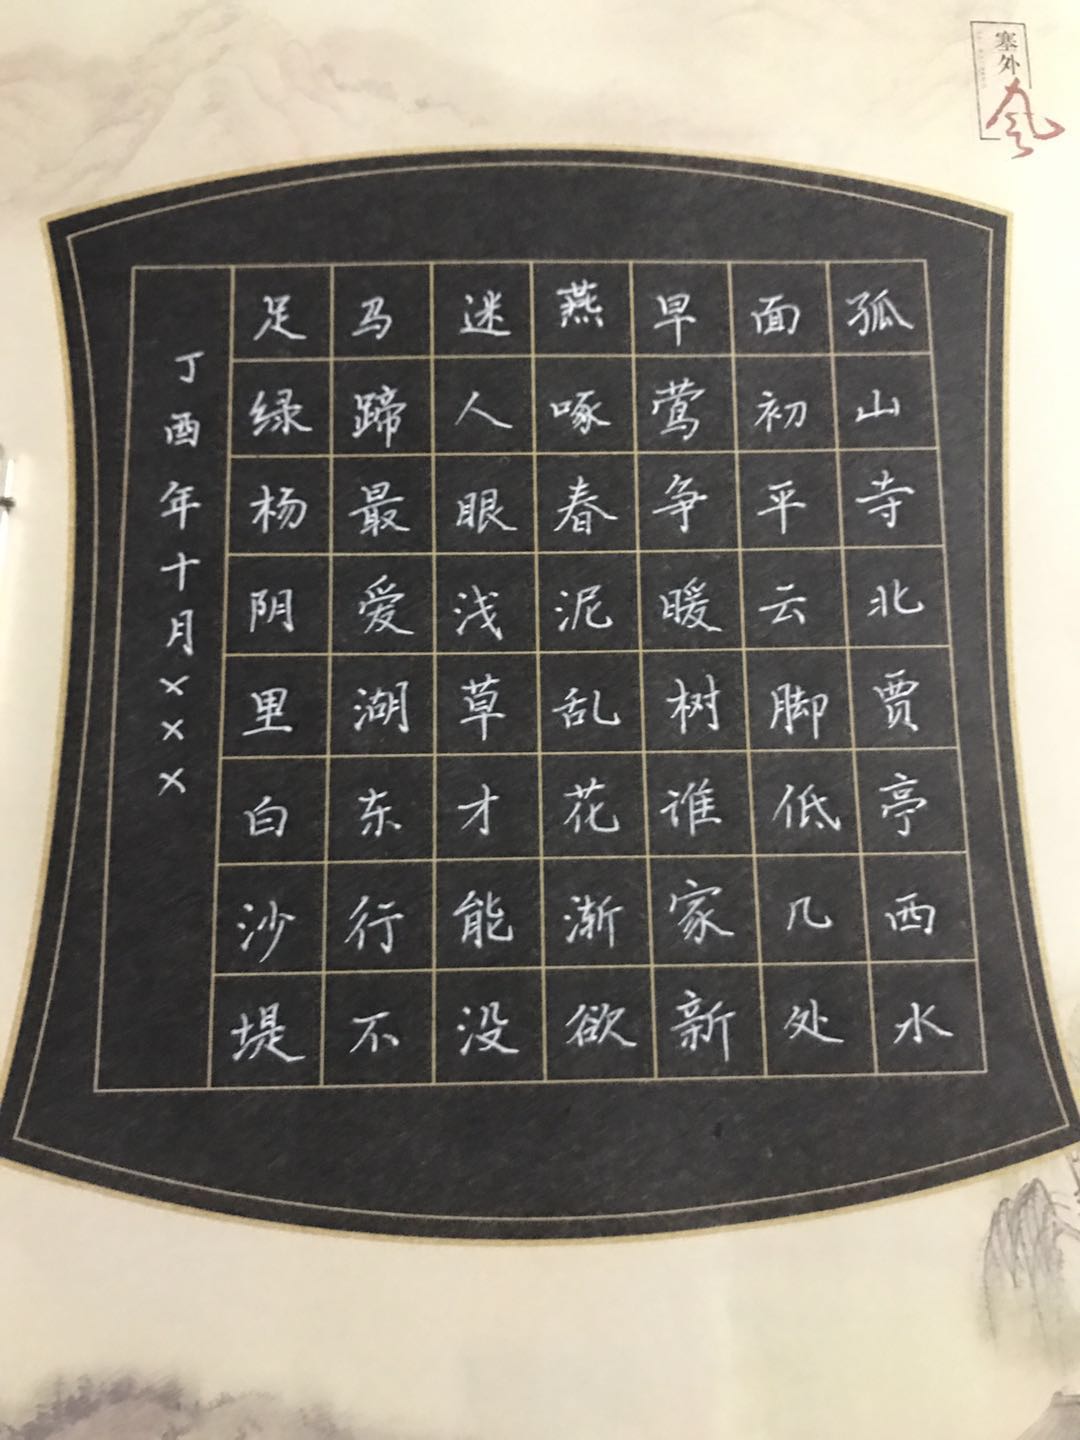 塞外风
孤山寺北贾亭西水
面初平云脚低几处
早莺争暖树谁家新
燕啄春泥乱花渐欲
迷人眼浅草才能没
马蹄最爱湖东行不
足绿杨阴里白沙堤
丁酉年十月×××